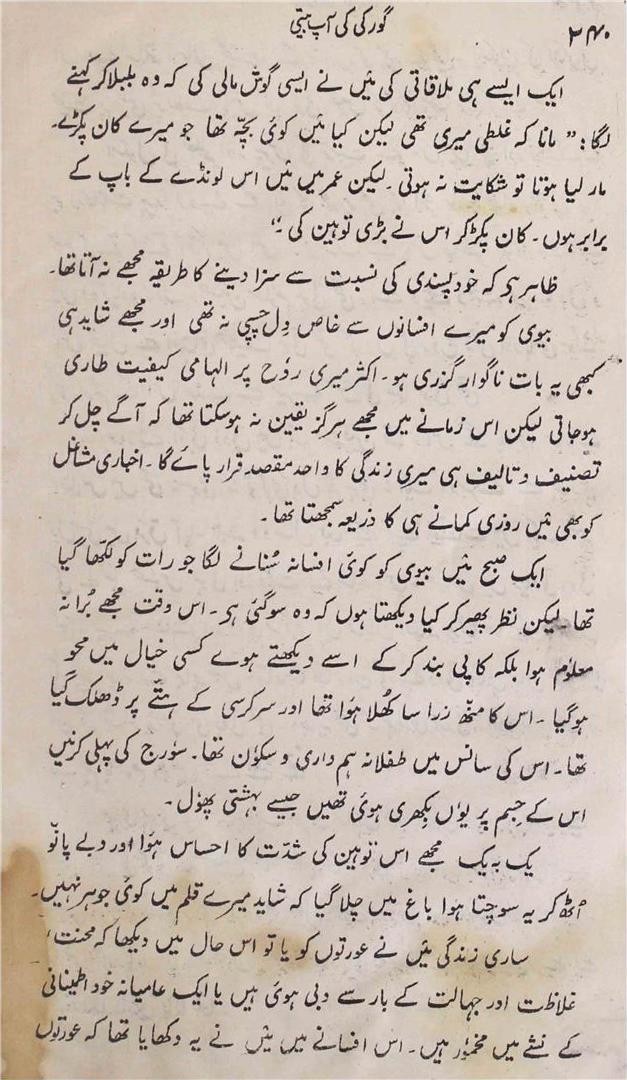 ۲۴۰
گورکی کی آپ بیتی
ایک ایسے ہی ملاقاتی کی مَیں نے ایسی گوش مالی کی کہ وہ بلبلا کر کہنے
لگا: ”مانا کہ غلطی میری تھی لیکن کیا مَیں کوئی بچّہ تھا جو میرے کان پکڑے۔
مار لیا ہوتا تو شکایت نہ ہوتی۔ لیکن عمر میں مَیں اس لونڈے کے باپ کے
برابر ہوں۔ کان پکڑ کر اس نے بڑی توہین کی۔“
ظاہر ہے کہ خود پسندی کی نسبت سے سزا دینے کا طریقہ مجھے نہ آتا تھا۔
بیوی کو میرے افسانوں سے خاص دِل چسپی نہ تھی اور مجھے شاید ہی
کبھی یہ بات ناگوار گزری ہو۔ اکثر میری روٗح پر الہامی کیفیت طاری
ہو جاتی لیکن اس زمانے میں مجھے ہرگز یقین نہ ہو سکتا تھا کہ آگے چل کر
تصنیف و تالیف ہی میری زندگی کا واحد مقصد قرار پائے گا۔ اخباری مشاغل
کو بھی مَیں روزی کمانے ہی کا ذریعہ سمجھتا تھا۔
ایک صبح مَیں بیوی کو کوئی افسانہ سُنانے لگا جو رات کو لکھا گیا
تھا۔ لیکن نظر پھیر کر کیا دیکھتا ہوں کہ وہ سو گئی ہی۔ اس وقت مجھے بُرا نہ
معلوٗم ہوا بلکہ کاپی بند کر کے اسے دیکھتے ہوے کسی خیال میں محو
ہو گیا۔ اس کا منّھ زرا سا کھُلا ہوٗا تھا اور سر کرسی کے ہتّے پر ڈھلک گیا
تھا۔ اس کی سانس میں طفلانہ ہم داری و سکوٗن تھا۔ سوٗرج کی پہلی کرنیں
اس کے جسم پر یوٗں بِکھری ہوئی تھیں جیسے بہشتی پھوٗل۔
یک بہ یک مجھے اس توہین کی شدّت کا احساس ہوٗا اور دبے پانوٗ
اُٹھ کر یہ سوچتا ہوا باغ میں چلا گیا کہ شاید میرے قلم میں کوئی جوہر نہیں۔
ساری زندگی مَیں نے عورتوں کو یا تو اس حال میں دیکھا کہ محنت،
غلاظت اور جہالت کے بار سے دبی ہوئی ہیں یا ایک عامیانہ خود اطینانی
کے نشے میں مخموٗر ہیں۔ اس افسانے میں مَیں نے یہ دکھایا تھا کہ عورتوں